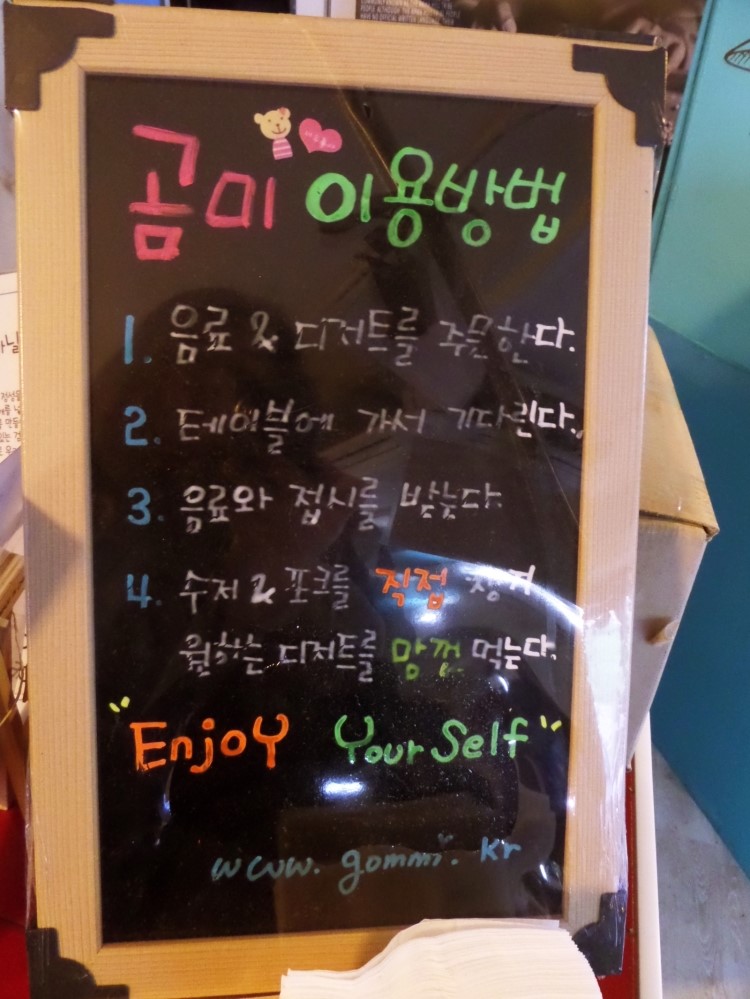 곰미 이용방법
1. 음료 & 디저트를 주문한다.
2. 테이블에 가서 기다린다.
3. 음료와 접시를 받는다.
4. 수저 & 포크를 직접 챙겨
원하는 디저트를 맘껏 먹는다.
"Enjoy Your Self"
www.gommi.kr